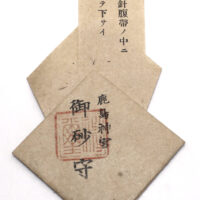 針腹帯ノ中ニ
テ下サイ
鹿島神宮
御砂守